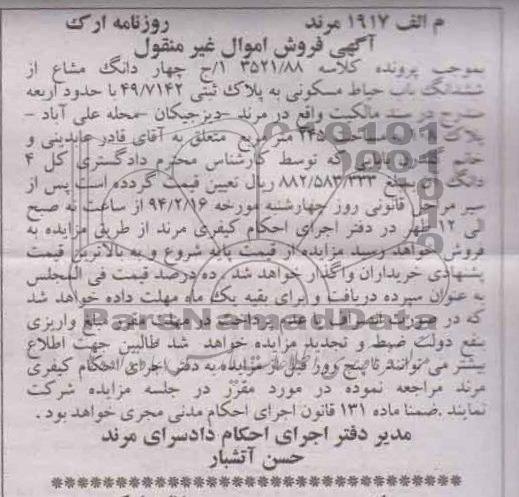 م الف ۱۹۱۷ مرند روزنامه ارک
آگهی فروش اموال غیر منقول
بموجب پرونده کلاسه ۳۵۲۱/۸۸ ۱/ج چهار دانگ مشاع از
ششدانگ باب حیاط مسکونی به پلاک ثبتی ۴۹/۷۱۴۲ با حدود اربعه
مندرج در سند مالکیت واقع در مرند -دیزجیکان -محله علی آباد -
پلاک متر مربع متعلق به آقای قادر عابدینی و
خانم که توسط کارشناس محترم دادگستری کل ۴
دانگ آن بمبلغ ۸۸۲/۵۸۳/۳۳۳ ریال تعیین قیمت گردده است پس از
سیر مراحل قانونی روز چهارشنبه مورخه ۹۴/۲/۱۶ از ساعت ۹ صبح
الی ۱۲ ظهر در دفتر اجرای احکام کیفری مرند از طریق مزایده به
فروش خواهد رسید مزایده از قیمت پایه شروع و به بالاترین قیمت
پشنهادی خریداران واگذار خواهد شد . ده درصد قیمت فی المجلس
به عنوان سپرده دریافت و برای بقیه یک ماه مهلت داده خواهد شد
که در صورت انصراف یا عدم پرداخت در مهلت مقرر مبلغ واریزی
بنفع دولت ضبط و تجدید مزایده خواهد شد طالبین جهت اطلاع
بیشتر می توانند تا پنج روز قبل از مزایده به دفتر اجرای احکام کیفری
مرند مراجعه نموده در مورد مقرر در جلسه مزایده شرکت
نمایند .ضمنا ماده ۱۳۱ قانون اجرای احکام مدنی مجری خواهد بود .
مدیر دفتر اجرای احکام دادسرای مرند
حسن آتشبار
ParsNamadData